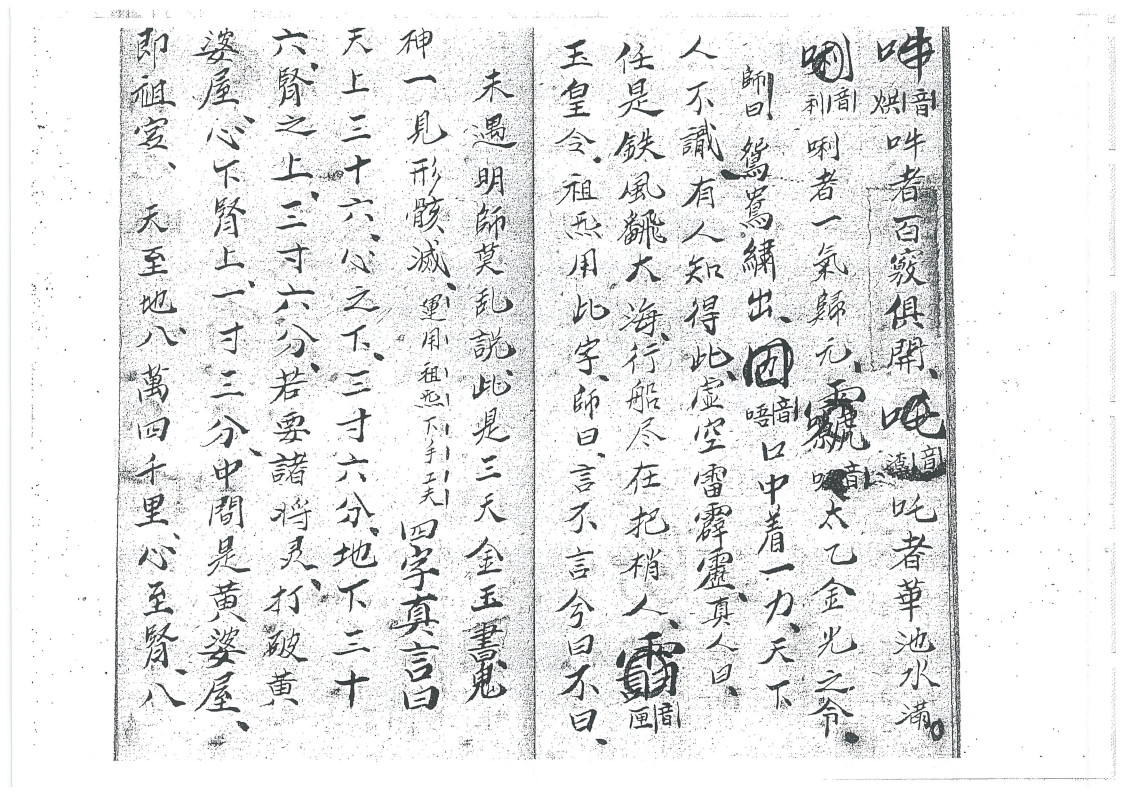 吽音烘吽者百竅俱開、吒音達吒者華池水滿。
唎音利唎者一氣歸元、音太乙金光之令、
師曰鴛鴦繡出、音唔口中着一力、天下
人不識有人知得此、虛空雷霹靂、真人曰、
任是鉄風翻大海、行船尽在把梢人、音匣
玉皇令、祖炁用此字、師曰、言不言今曰不曰、
未遇明師莫乱説、此是三天金玉書、鬼
神一見形骸滅、運用祖炁下手工夫四字真言曰
天上三十六、心之下、三寸六分、地下三十
六、腎之上、三寸六分、若要諸将灵、打破黄
婆屋、心下腎上、一寸三分、中間是黄婆屋、
即祖宮、天至地八萬四千里、心至腎、八